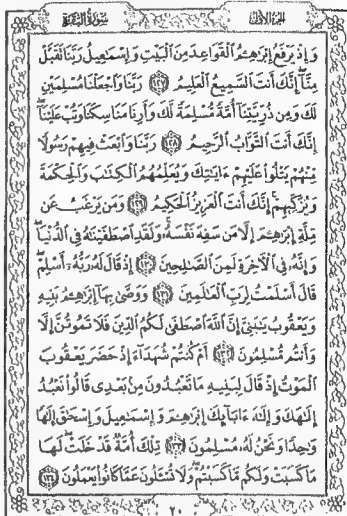 سُورَةُ البَقَرَةِ الجزء الأول
وَإِذْ يَرْفَعُ إِبْرَٰهِـۧمُ ٱلْقَوَاعِدَ مِنَ ٱلْبَيْتِ وَإِسْمَـٰعِيلُ رَبَّنَا تَقَبَّلْ
مِنَّآ إِنَّكَ أَنتَ ٱلسَّمِيعُ ٱلْعَلِيمُ ١٢٧ رَبَّنَا وَٱجْعَلْنَا مُسْلِمَيْنِ
لَكَ وَمِن ذُرِّيَّتِنَآ أُمَّةً مُّسْلِمَةً لَّكَ وَأَرِنَا مَنَاسِكَنَا وَتُبْ عَلَيْنَآ
إِنَّكَ أَنتَ ٱلتَّوَّابُ ٱلرَّحِيمُ ١٢٨ رَبَّنَا وَٱبْعَثْ فِيهِمْ رَسُولًا
مِّنْهُمْ يَتْلُوا۟ عَلَيْهِمْ ءَايَـٰتِكَ وَيُعَلِّمُهُمُ ٱلْكِتَـٰبَ وَٱلْحِكْمَةَ
وَيُزَكِّيهِمْ إِنَّكَ أَنتَ ٱلْعَزِيزُ ٱلْحَكِيمُ ١٢٩ وَمَن يَرْغَبُ عَن
مِّلَّةِ إِبْرَٰهِـۧمَ إِلَّا مَن سَفِهَ نَفْسَهُۥ وَلَقَدِ ٱصْطَفَيْنَـٰهُ فِى ٱلدُّنْيَا
وَإِنَّهُۥ فِى ٱلْـَٔاخِرَةِ لَمِنَ ٱلصَّـٰلِحِينَ ١٣٠ إِذْ قَالَ لَهُۥ رَبُّهُۥٓ أَسْلِمْ
قَالَ أَسْلَمْتُ لِرَبِّ ٱلْعَـٰلَمِينَ ١٣١ وَوَصَّىٰ بِهَآ إِبْرَٰهِـۧمُ بَنِيهِ
وَيَعْقُوبُ يَـٰبَنِىَّ إِنَّ ٱللَّهَ ٱصْطَفَىٰ لَكُمُ ٱلدِّينَ فَلَا تَمُوتُنَّ إِلَّا
وَأَنتُم مُّسْلِمُونَ ١٣٢ أَمْ كُنتُمْ شُهَدَآءَ إِذْ حَضَرَ يَعْقُوبَ
ٱلْمَوْتُ إِذْ قَالَ لِبَنِيهِ مَا تَعْبُدُونَ مِنۢ بَعْدِى قَالُوا۟ نَعْبُدُ
إِلَـٰهَكَ وَإِلَـٰهَ ءَابَآئِكَ إِبْرَٰهِـۧمَ وَإِسْمَـٰعِيلَ وَإِسْحَـٰقَ إِلَـٰهًا
وَٰحِدًا وَنَحْنُ لَهُۥ مُسْلِمُونَ ١٣٣ تِلْكَ أُمَّةٌ قَدْ خَلَتْ لَهَا
مَا كَسَبَتْ وَلَكُم مَّا كَسَبْتُمْ وَلَا تُسْـَٔلُونَ عَمَّا كَانُوا۟ يَعْمَلُونَ ١٣٤
٢٠